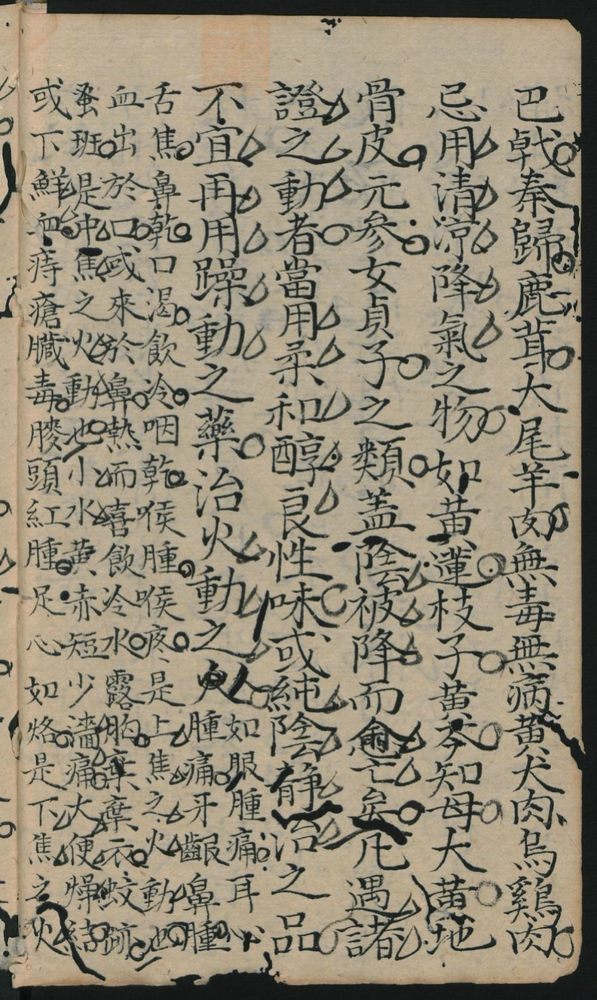 巴戟秦歸鹿茸大尾羊肉無毒無病黃犬肉烏鷄肉
忌用清涼降氣之物如黃連枝子黃芩知母大黃地
骨皮元參女貞子之類蓋陰被降而愈亡矣凡遇諸
證之動者當用柔和醇良性味或純陰静治之品
不宜再用躁動之藥治火動之火如眼腫痛耳
腫痛牙齦鼻腫
舌焦鼻乾口渴飲冷咽乾喉腫喉疼是上焦之火動也
血出於口或來於鼻熱而喜飲冷水露胸棄衣蚊跡
蚤班是中焦之火動也小水黃赤短少濇痛大便燥結
或下鮮血痔瘡臟毒䐃頭紅腫足心如烙是下焦之火